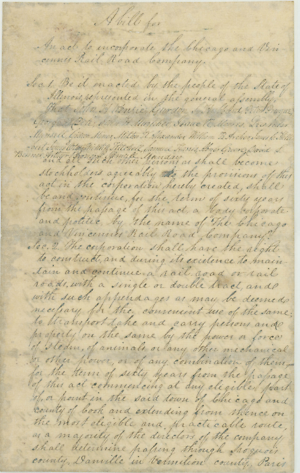 A bill for
An act to incorporate the Chicago and Vin-
cennes Rail Road Company.
Sec 1 Be it enacted by the people of the State of
Illinois, represented in the general assembly
and all such other persons as shall become
stockholders agreeably to the provisions of this
act in the corporation hereby created, shall
be and continue for the term of sixty years
from the passage of this act a body corporate
and politic by the name of "The Chicago
and Vincennes Rail Road Company."
Sec. 2 The corporation shall have the right
to construct and during its existence to main-
tain and continue a rail road or rail
roads, with a single or double track, and
with such appendages as may be deemed
necessary for the convenient use of the same,
to transport take and carry persons and
property on the same by the power & force
of steam, of animals or any other mechanical
or other power, or of any combination of them
for the term of sixty years from the passage
of this act commencing at any eligible part
or a point in the said town of Chicago and
county of Cook and extending from thence on
the most eligible and practicable route,
as a majority of the directors of the company
shall determine passing through Iroquois
county, Danville in Vermilion county, Paris